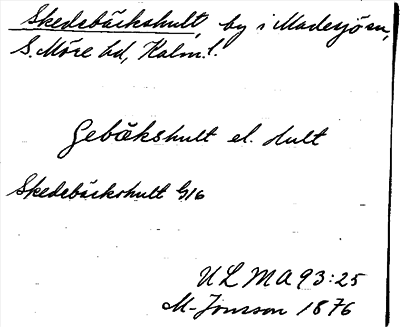 Skedebäckshult, by i Madesjö sn,
S. Möre hd, Kalm. l.
Gebäkshult el. Hult
Skedebäckshult G16
ULMA 93:25
M. Jonsson 1876